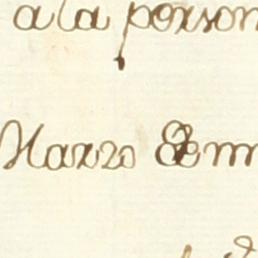 a la person
Marzo de m